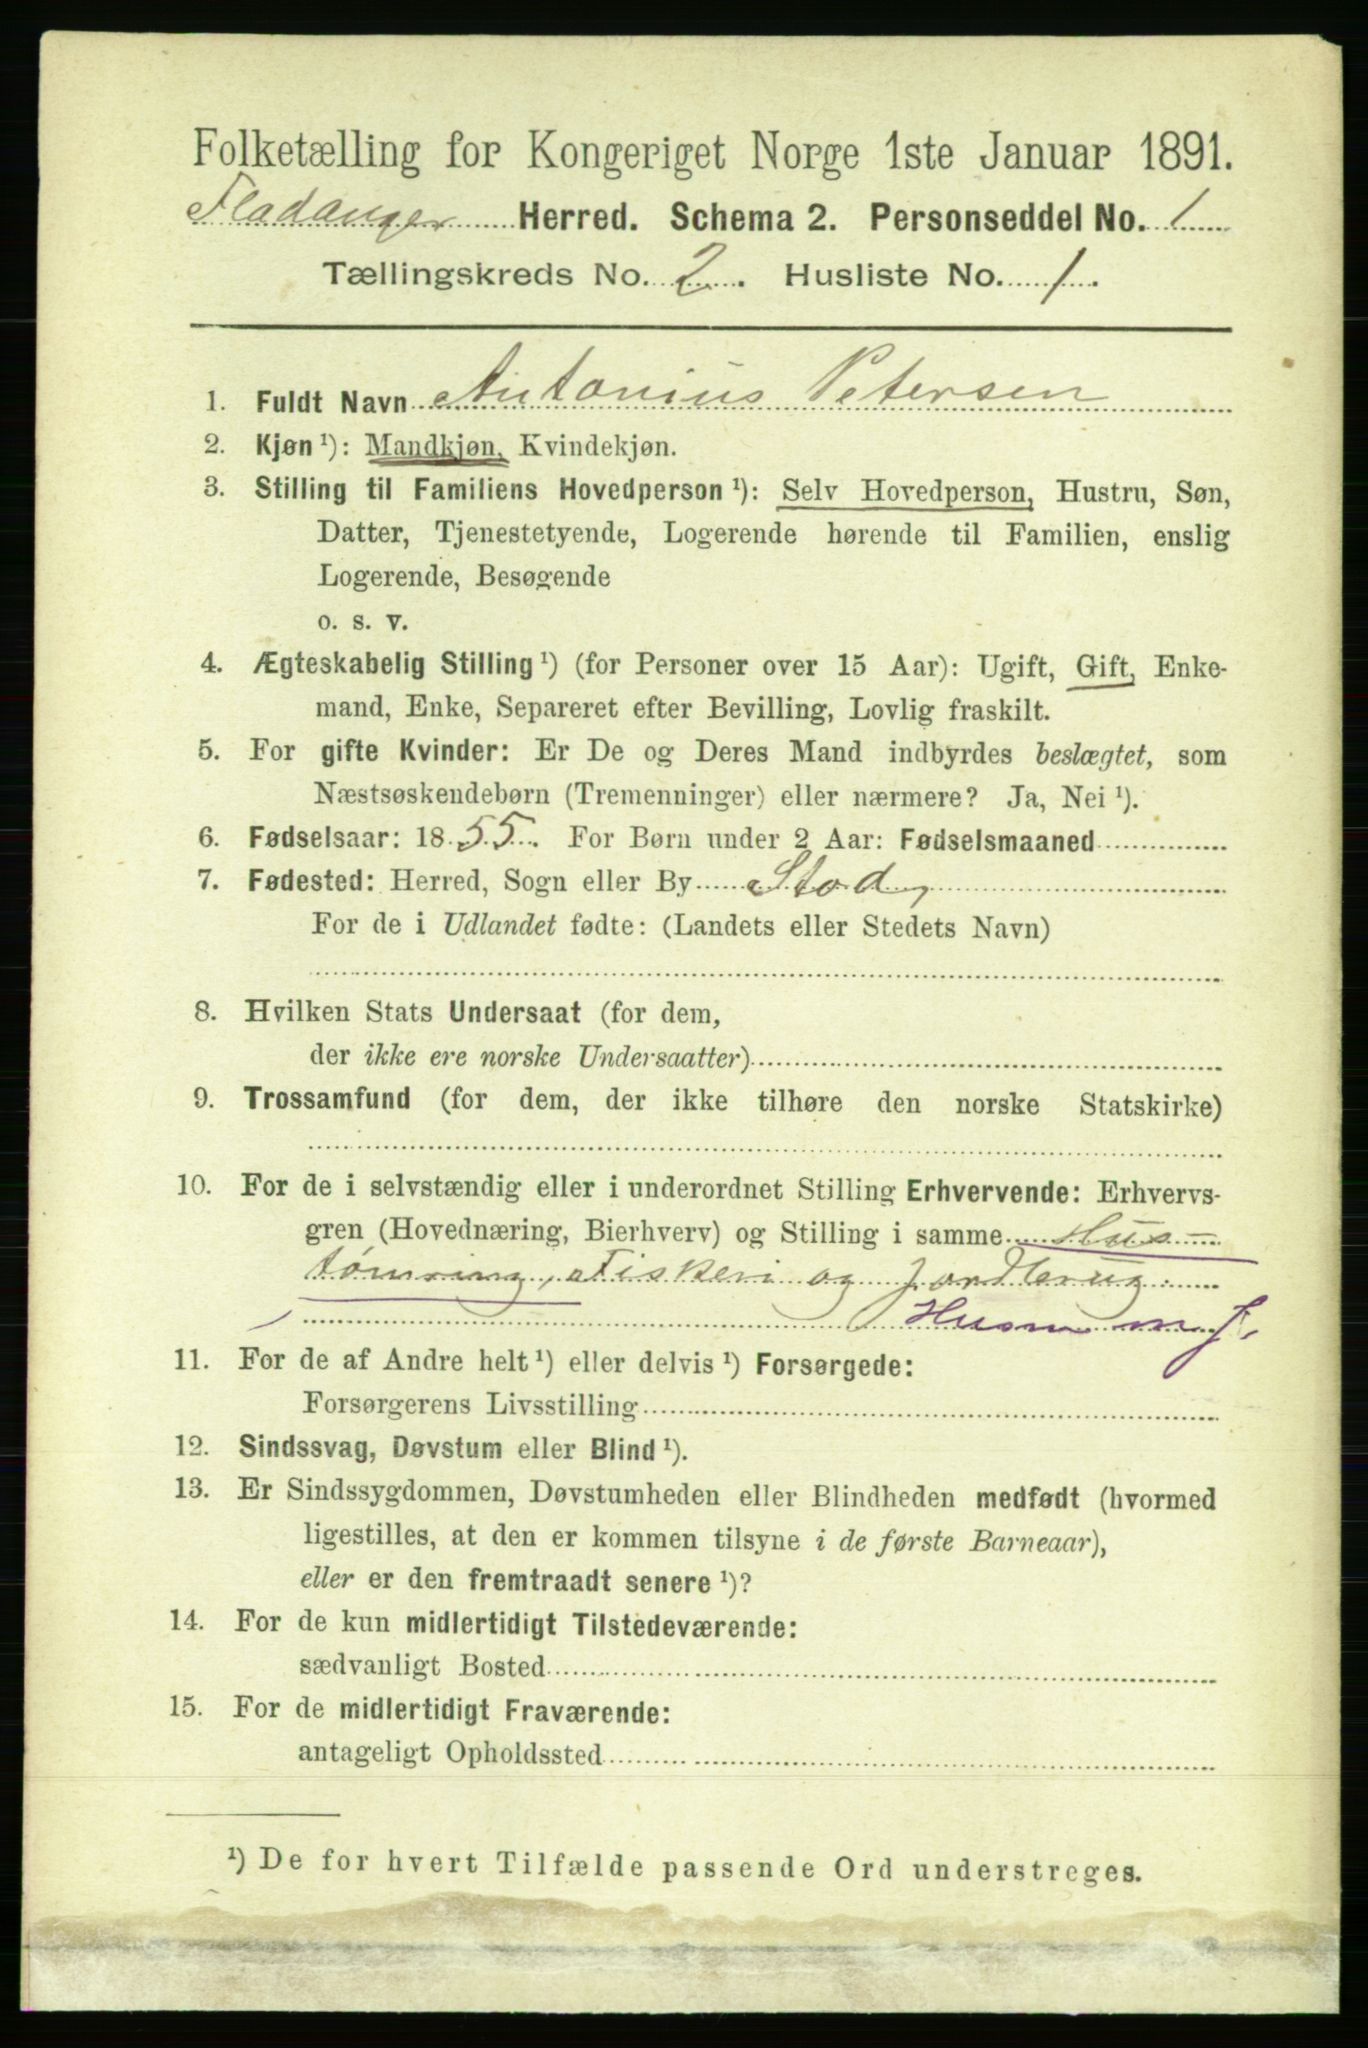 Folketælling for Kongeriget Norge 1ste Januar 1891.
Fladanger Herred. Schema 2. Personseddel No. 1
Tællingskreds No. 2. Husliste No. 1.
1. Fuldt Navn Antonius Petersen
2. Kjøn ¹): Mandkjøn, Kvindekjøn.
3. Stilling til Familiens Hovedperson ¹): Selv Hovedperson, Hustru, Søn,
Datter, Tjenestetyende, Logerende hørende til Familien, enslig
Logerende, Besøgende
o. s. v.
4. Ægteskabelig Stilling ¹) (for Personer over 15 Aar): Ugift, Gift, Enke-
mand, Enke, Separeret efter Bevilling, Lovlig fraskilt.
5. For gifte Kvinder: Er De og Deres Mand indbyrdes beslægtet, som
Næstsøskendebørn (Tremenninger) eller nærmere? Ja, Nei ¹).
6. Fødselsaar: 1855. For Børn under 2 Aar: Fødselsmaaned
7. Fødested: Herred, Sogn eller By Stod,
For de i Udlandet fødte: (Landets eller Stedets Navn)
8. Hvilken Stats Undersaat (for dem,
der ikke ere norske Undersaatter)
9. Trossamfund (for dem, der ikke tilhøre den norske Statskirke)
10. For de i selvstændig eller i underordnet Stilling Erhvervende: Erhvervs-
gren (Hovednæring, Bierhverv) og Stilling i samme Hus-
tømring, Fiskeri og Jordbrug
Husm m J.
11. For de af Andre helt ¹) eller delvis ¹) Forsørgede:
Forsørgerens Livsstilling
12. Sindssvag, Døvstum eller Blind ¹).
13. Er Sindssygdommen, Døvstumheden eller Blindheden medfødt (hvormed
ligestilles, at den er kommen tilsyne i de første Barneaar),
eller er den fremtraadt senere ¹)?
14. For de kun midlertidigt Tilstedeværende:
sædvanligt Bosted
15. For de midlertidigt Fraværende:
antageligt Opholdssted
¹) De for hvert Tilfælde passende Ord understreges.